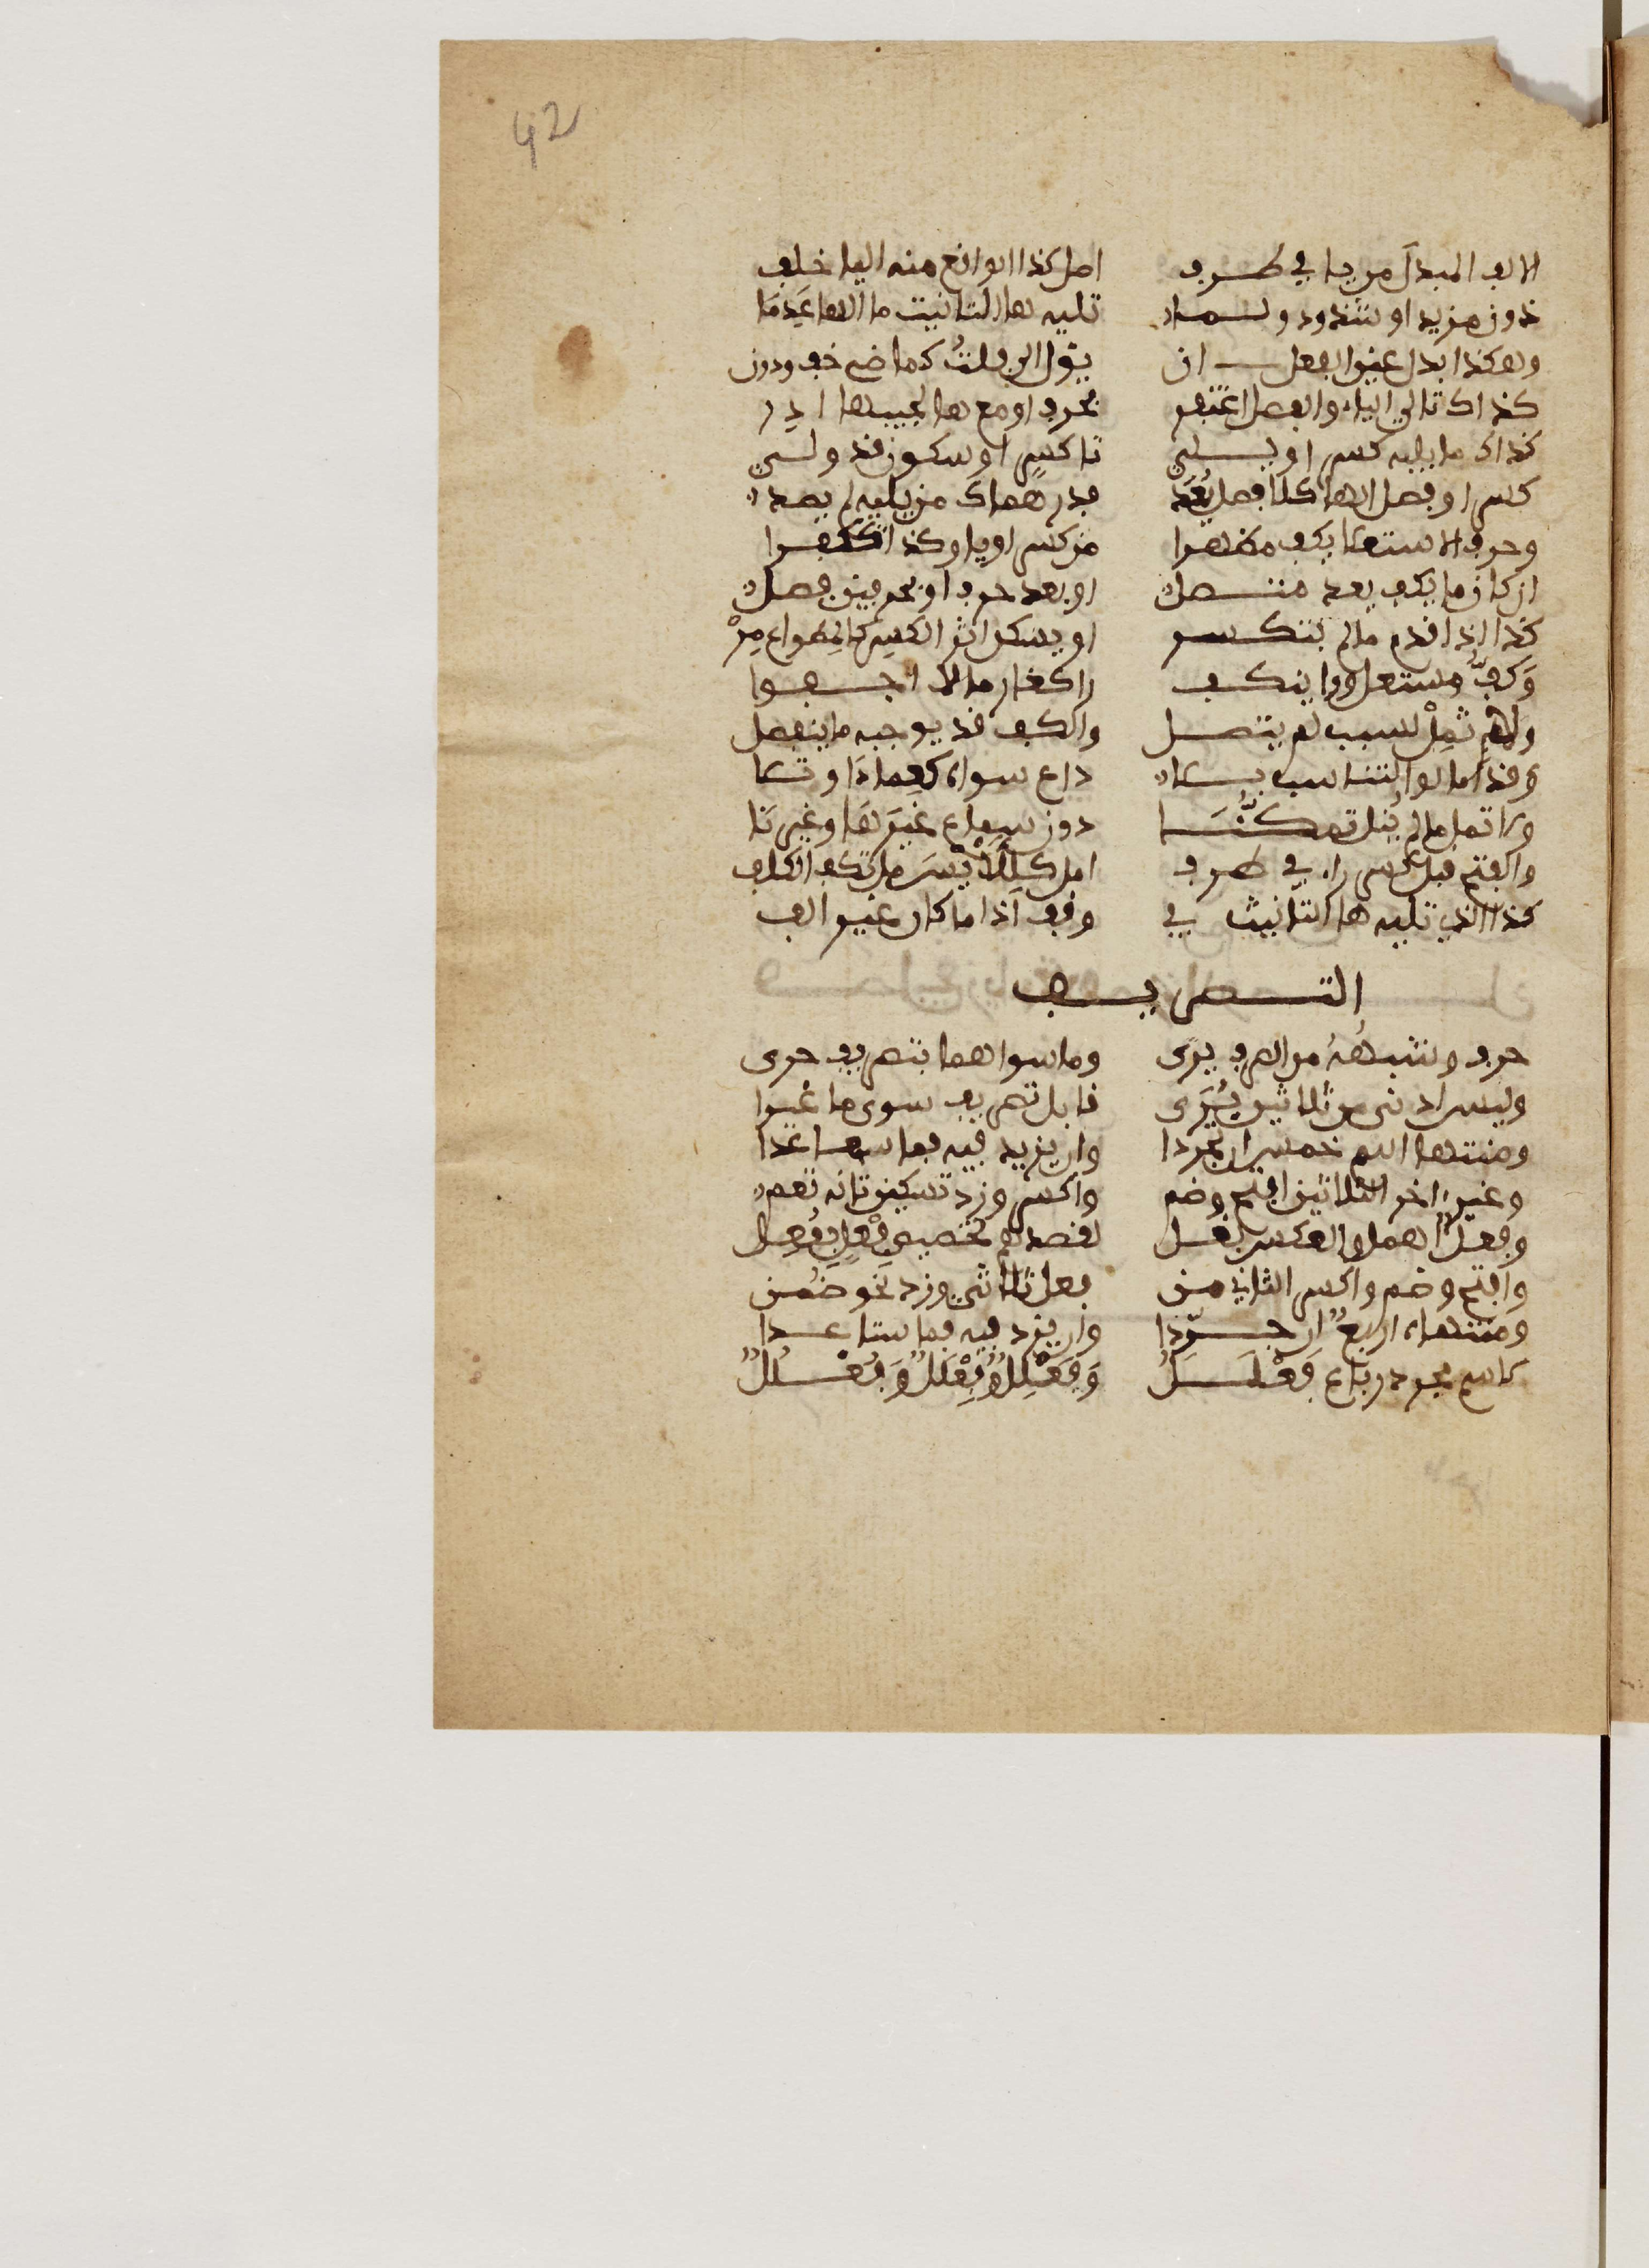 42
الالف المبدل من يا في طرف امل كذا الواقع منه اليا خلف
دون مزيد او شذوذ ولما تليه ها التانيث ما الها عَدِمَا
وهكذا بدل عين الفعل ان يئول الى فلتُ كماضي خف ودن
كذاك تالي الياء والفصل اغتفر بحرف او مع ها كجيبها ادِر
كذاك ما يليه كسر او يلي تا كسرٍ او سكون قد ولي
كسرا وفصل الها كلا فصل يُعَد فدرهماك من يمله لم يصد
وحرف الاستعلا يكف مظهرا من كسر او يا وكذا تكف را
ان كان ما يكف بعد متصل او بعد حرف او بحرفين فصل
كذا اذا قدم ما لم ينكسر او يسكن اثر الكسر كالمطواع مِرْ
وَكَفُّ مستعل ورا ينكف بكسر را كغارما لا اجفوا
ولا تُمِلْ لسبب لم يتصل والكف قد يوجبه ما ينفصل
وقد امالوا لتناسب بلا داع سواه كعمادا وتلا
ولا تمل ما لم يُنل تمكُّنَا دون سماع غيرَ ها وغير نا
والفتح قبل كسر راء في طرف امل كللايْسَر مل تكف الكلف
كذا الذي تليه ها التانيث في وقف اذا ما كان غير الف
التصريف
حرف وشبهُهُ من الصرف بري وما سواهما بتصريف حري
وليس ادنى من ثلاثي يُرَى قابل تصريف سوى ما غيرا
ومنتهى اسم خمس ان تجردا وان يزد فيه فما سبعا عَدَا
وغير اخر الثلاثي افتح وضم واكسر وزد تسكين ثانه تعم
وفِعُلٌ اهمل والعكس يقل لقصدهم تخصيص فِعْلٍ بفُعِل
وافتح وضم واكسر الثاني من فعل ثلاثي وزد نحو ضُمن
ومنتهاه اربعٌ ان جردا وان يزد فيه فما ستا عدا
لاسم مجرد رباع فَعْلَلُ وَفِعْلِلٌ وفِعْلَلٌ وَفُعْلُلُ